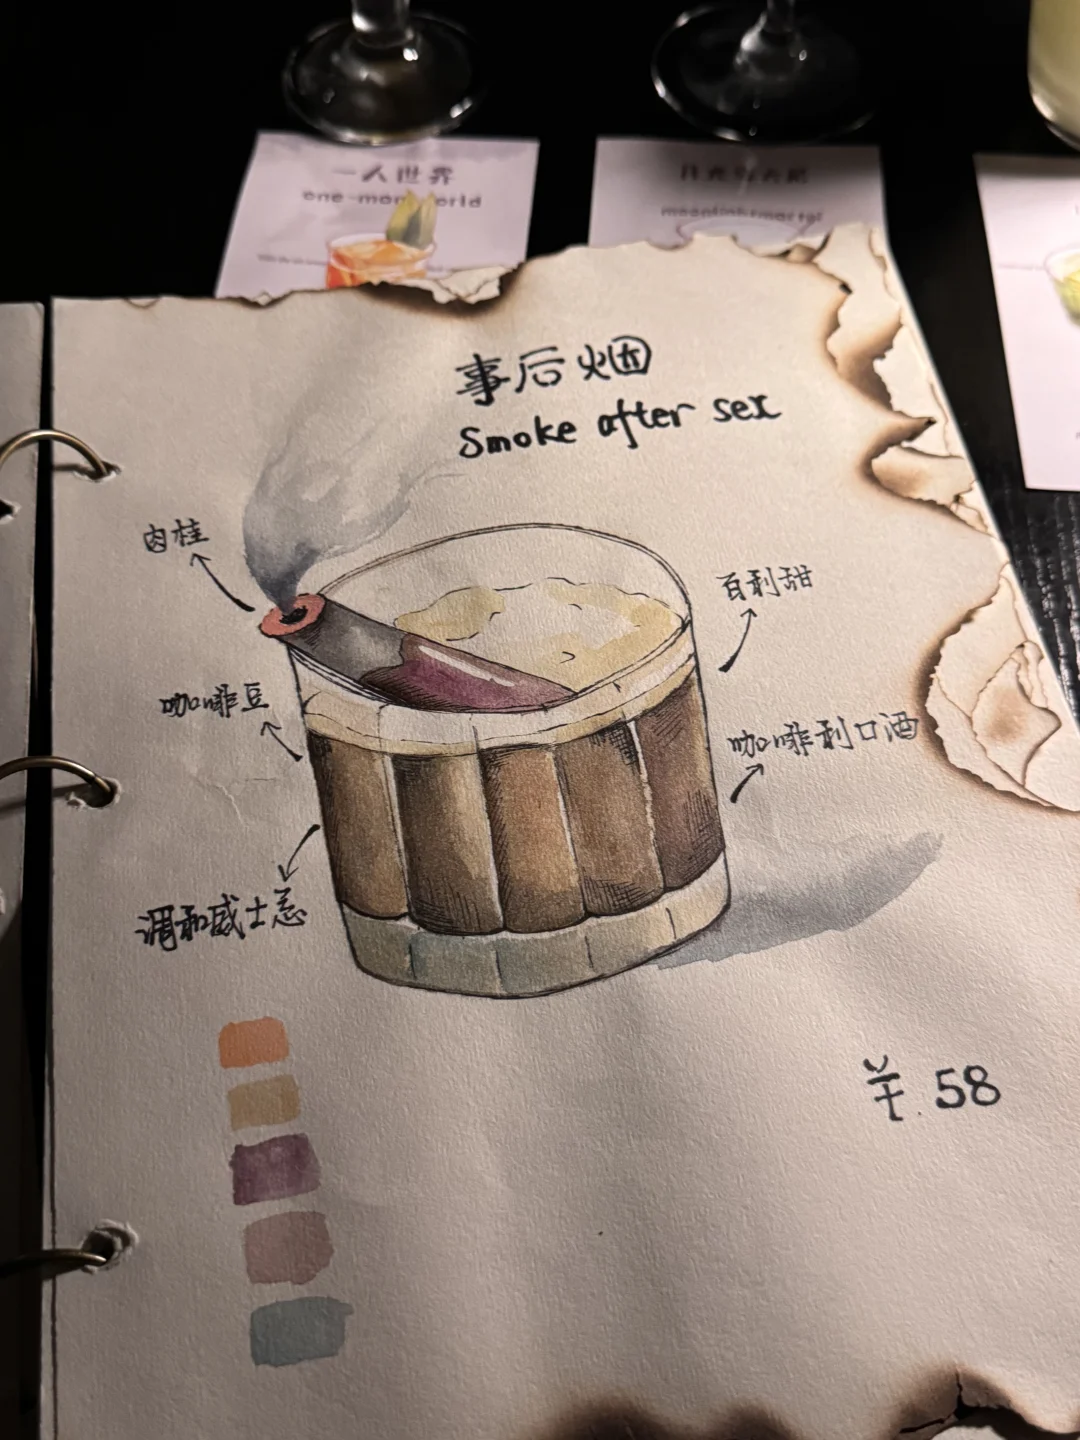 一人世界
事后烟
Smoke after sex
肉桂
百利甜
咖啡豆
咖啡利口酒
调和威士忌
¥ 58